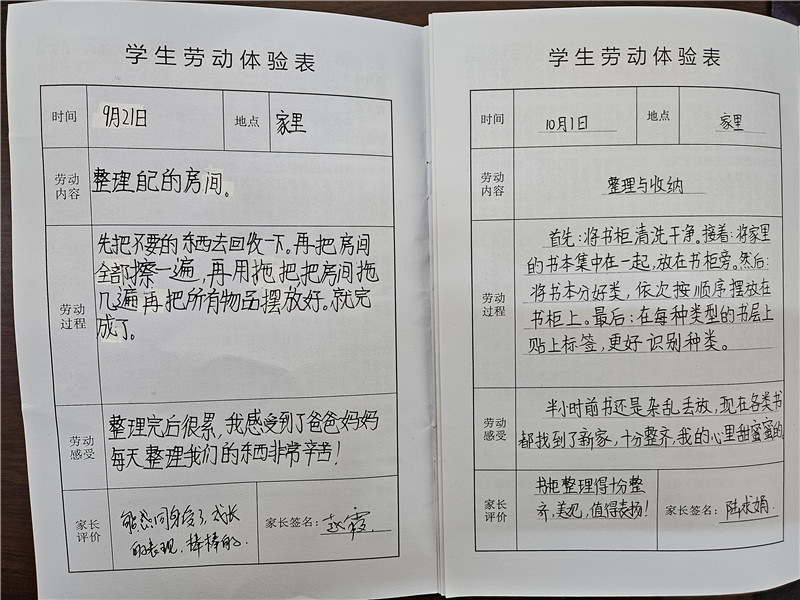 学生劳动体验表
时间 9月21日 地点 家里
劳动内容 整理自己的房间。
劳动过程
先把不要的东西去回收一下。再把房间
全部擦一遍,再用拖把把房间拖
几遍再把所有物品摆放好。就完
成了。
劳动感受
整理完后很累,我感受到了爸爸妈妈
每天整理我们的东西非常辛苦!
家长评价
的表现,棒棒的。
家长签名:赵霞
学生劳动体验表
时间 10月1日 地点 家里
劳动内容 整理与收纳
劳动过程
首先:将书柜清洗干净。接着:将家里
的书本集中在一起,放在书柜旁。然后:
将书本分好类,依次按顺序摆放在
书柜上。最后:在每种类型的书层上
贴上标签,更好识别种类。
劳动感受
半小时前书还是杂乱丢放,现在各类书
都找到了新家,十分整齐,我的心里甜蜜蜜的
家长评价
书柜整理得十分整
齐,美观,值得表扬!
家长签名:陆 娟